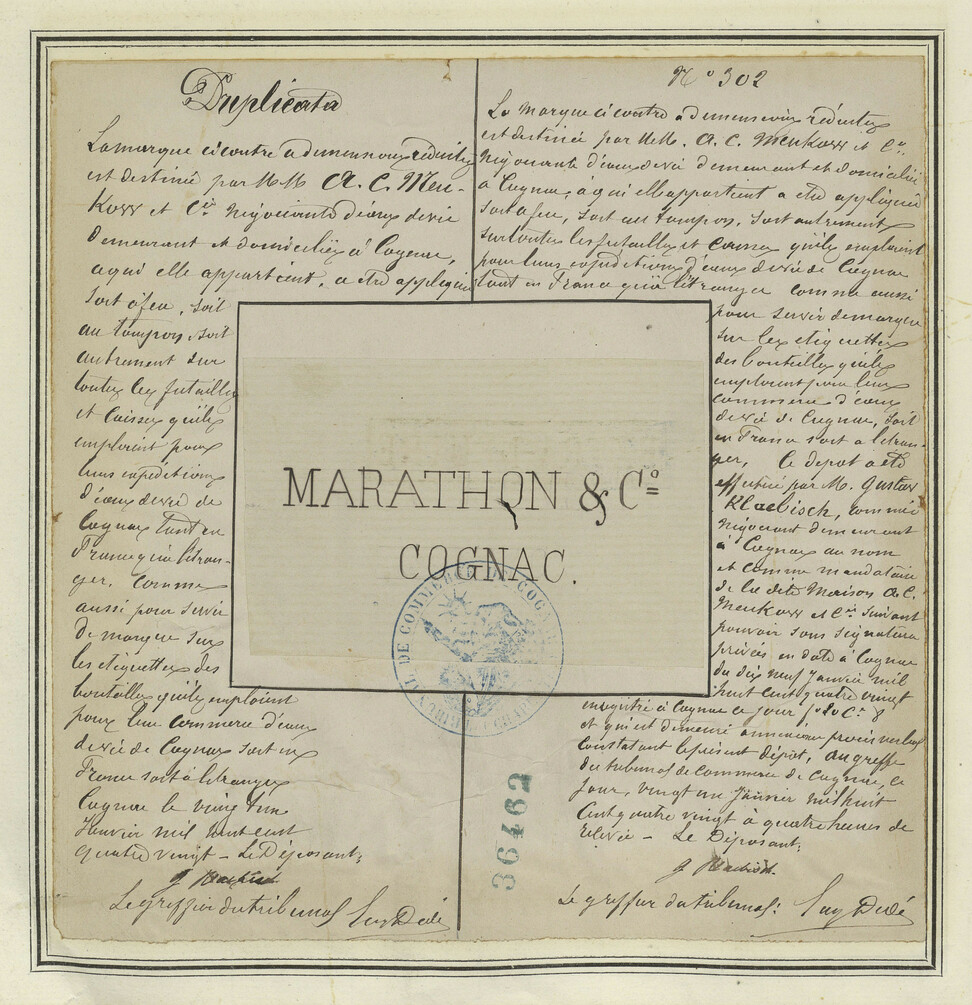 Duplicata
La marque ci contre a dimensions réduites
est destinée par MM A. C. Meu-
kow et Cie Négociants d'eaux de vie
demeurant et domiciliés à Cognac,
a qui elle appartient, a etre appliquée
soit à feu, soit
au tampon, soit
autrement sur
toutes les futailles
et caisses qu'ils
emploient pour
leurs expéditions
d'eaux de vie de
Cognac tant en
France qu'a l'étran-
ger, comme
aussi pour servir
de marque sur
les etiquettes des
bouteilles qu'ils emploient
pour leur commerce d'eaux
de vie de Cognac soit en
France soit à l'étranger
Cognac le vingt un
Janvier mil huit cent
quatre vingt - Le Déposant;
Le greffier du tribunal
No 302
La marque ci contre a dimensions réduites
est destinée par MM. A. C. Meukow et Co.
Négociants d'eaux de vie demeurant et domiciliés
a Cognac, à qui elle appartient a etre appliquée
soit a feu, soit au tampon, soit autrement
sur toutes les futailles et caisses qu'ils emploient
pour leurs expéditions d'eaux de vie de Cognac
tant en France qu'à l'étranger comme aussi
pour servir de marque
sur les etiquettes
des bouteilles qu'ils
emploient pour leur
commerce d'eaux
de vie de Cognac, soit
en France soit a l'étran-
ger, le depot a été
effectué par M. Gustav
Klaebisch, commis
négociant demeurant
à Cognac au nom
et comme mandataire
de la dite Maison A. C.
Meukow et Cie suivant
pouvoir sous signatures
privées en date à Cognac
du dix neuf janvier mil
huit cent quatre vingt
enregistré à Cognac ce jour, fo 20 Co 8
et qui est demeuré annexé au procès verbal
constatant le présent dépot, au greffe
du tribunal de commerce de Cognac, ce
jour, vingt un Janvier mil huit
cent quatre vingt à quatre heures de
relevée - Le Déposant;
Le greffier du tribunal:
MARATHON & Co
COGNAC.
TRIBUNAL DE COMMERCE DE COGNAC
36462